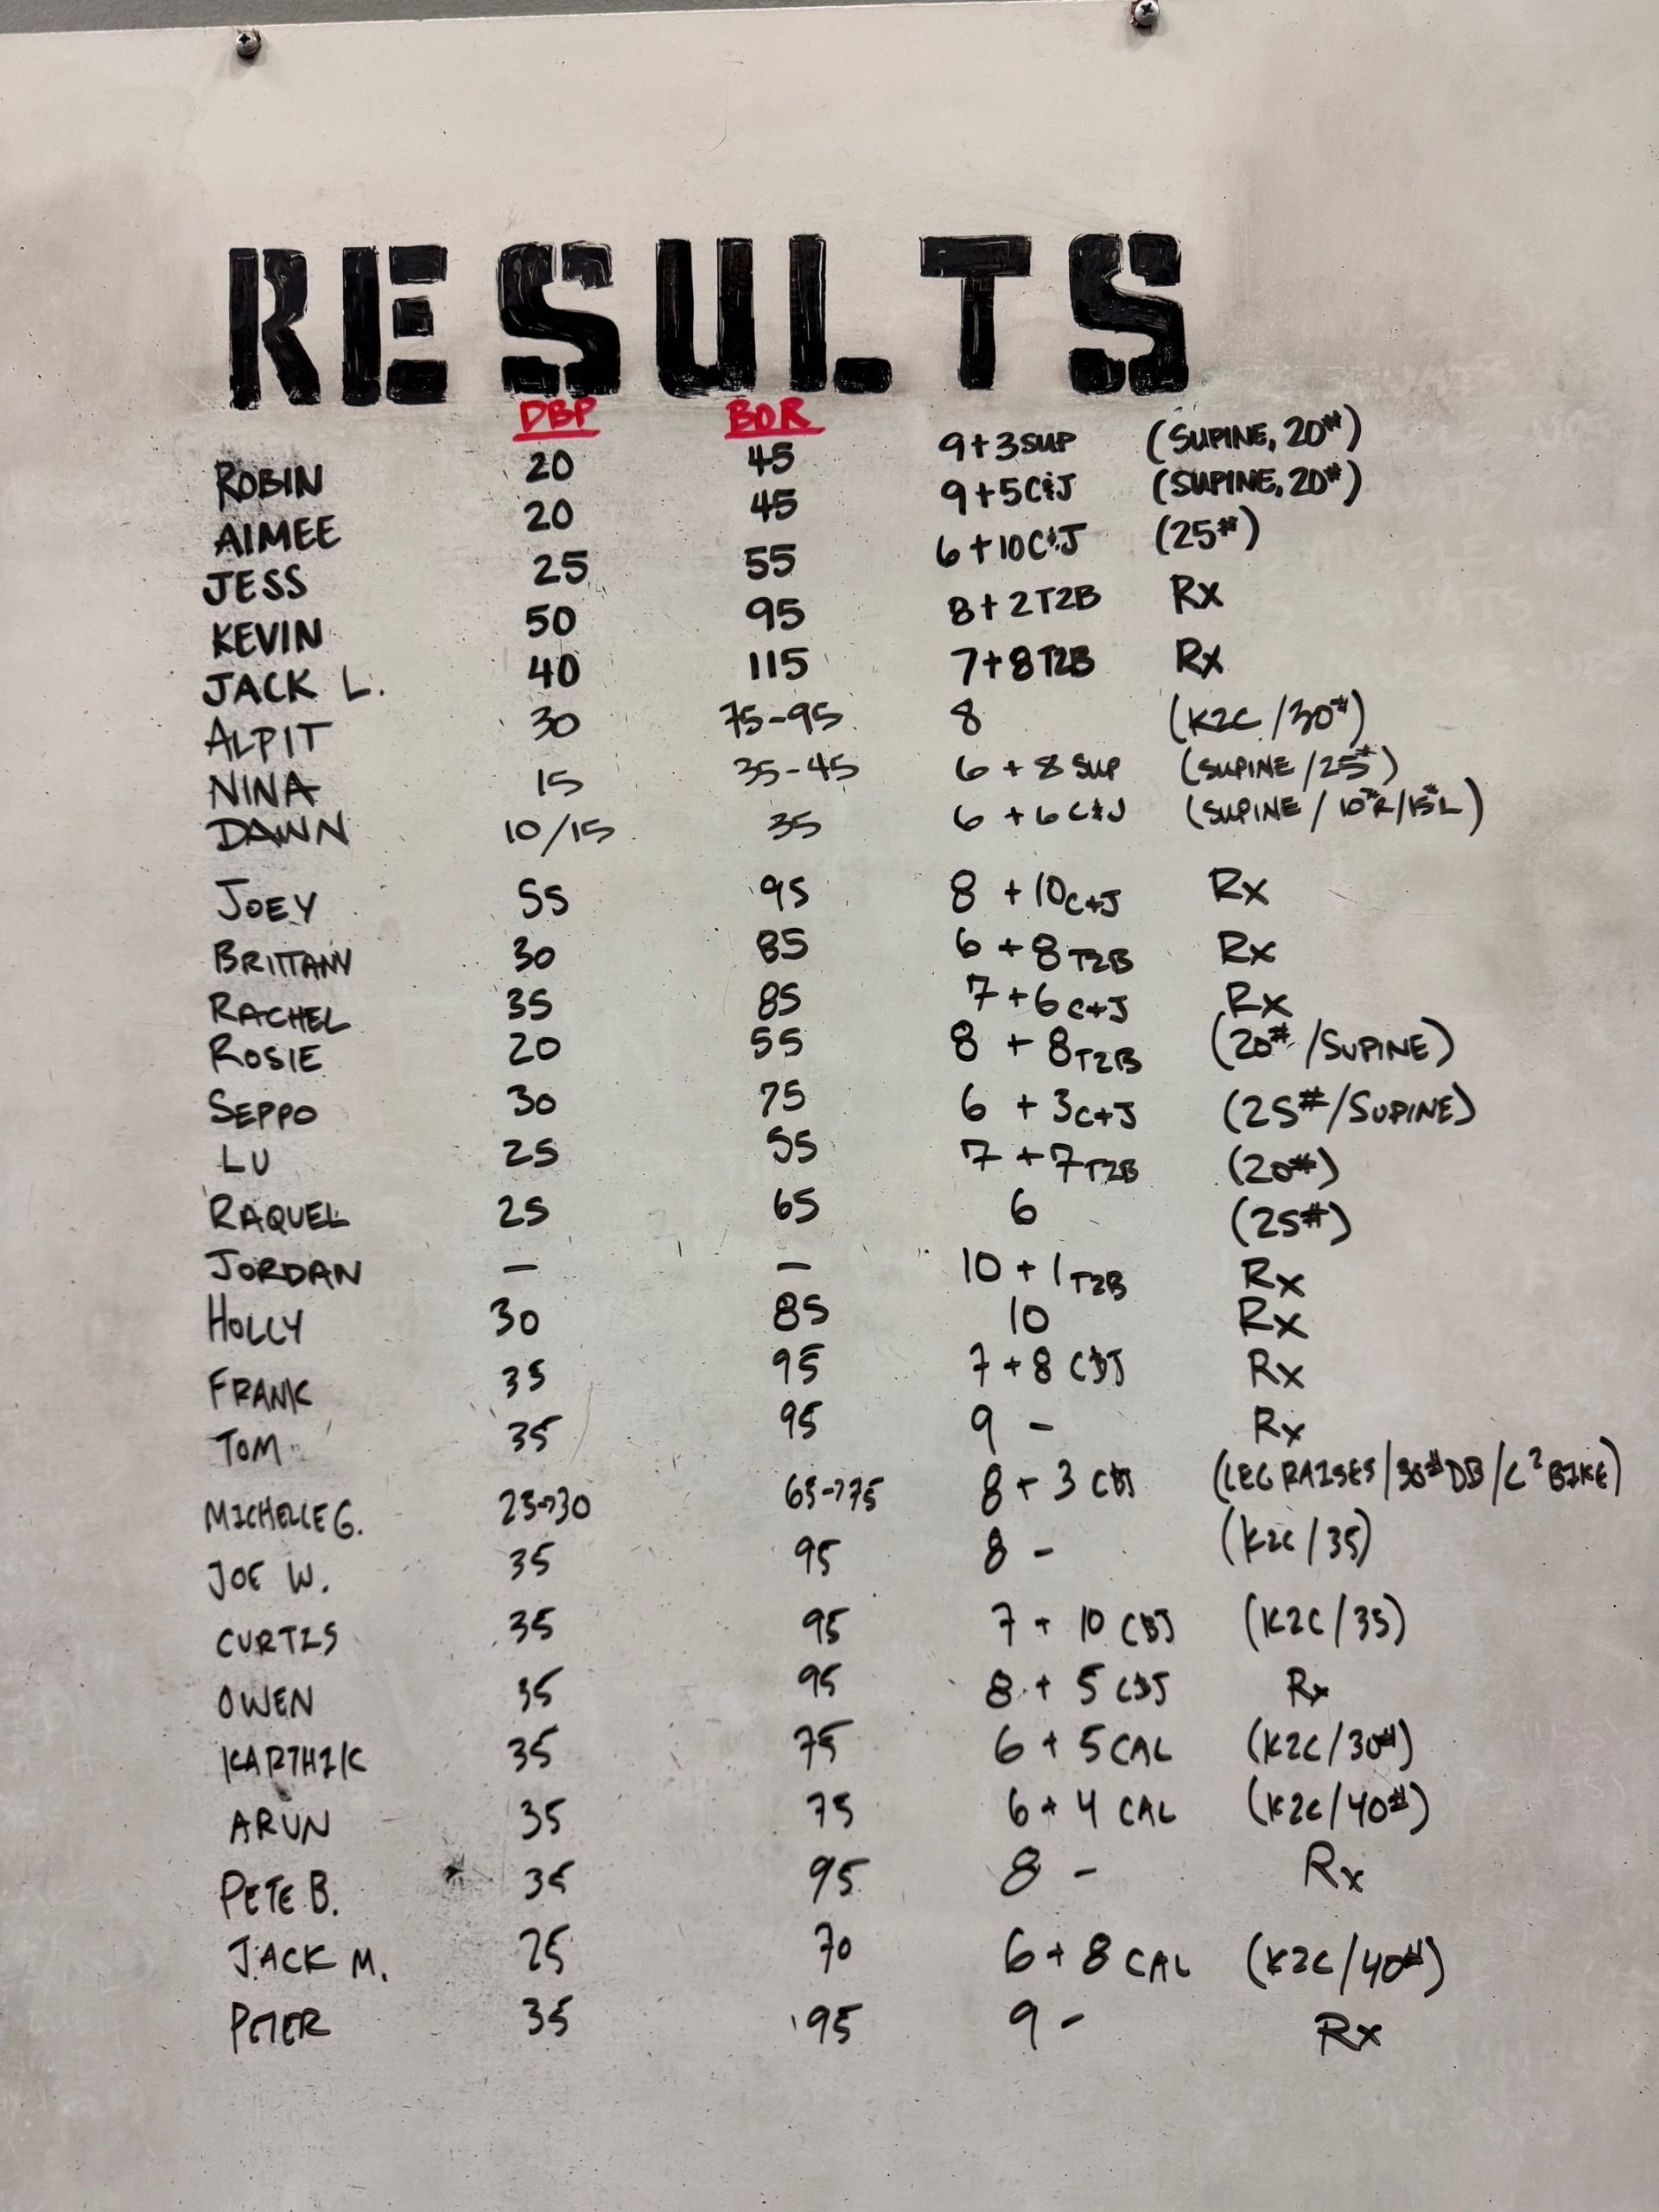 RESULTS
DBP BOR
ROBIN 20 45 9+3 SUP (SUPINE, 20#)
AIMEE 20 45 9+5 C&J (SUPINE, 20#)
JESS 25 55 6+10 C&J (25#)
KEVIN 50 95 8+2 T2B Rx
JACK L. 40 115 7+8 T2B Rx
ALPIT 30 75-95 8 (K2C/30#)
NINA 15 35-45 6+8 SUP (SUPINE/25#)
DAWN 10/15 35 6+6 C&J (SUPINE/10#R/15#L)
JOEY 55 95 8+10 C+J Rx
BRITTANY 30 85 6+8 T2B Rx
RACHEL 35 85 7+6 C+J Rx
ROSIE 20 55 8+8 T2B (20#/SUPINE)
SEPPO 30 75 6+3 C+J (25#/SUPINE)
LU 25 55 7+7 T2B (20#)
RAQUEL 25 65 6 (25#)
JORDAN — — 10+1 T2B Rx
HOLLY 30 85 10 Rx
FRANK 35 95 7+8 C&J Rx
TOM 35 95 9 - Rx
MICHELLE G. 25->30 65->75 8+3 C&J (LEG RAISES/30# DB/C2 BIKE)
JOE W. 35 95 8 - (K2C/35)
CURTIS 35 95 7+10 C&J (K2C/35)
OWEN 35 95 8+5 C&J Rx
KARTHIK 35 75 6+5 CAL (K2C/30#)
ARUN 35 75 6+4 CAL (K2C/40#)
PETE B. 35 95 8 - Rx
JACK M. 25 70 6+8 CAL (K2C/40#)
PETER 35 95 9 - Rx